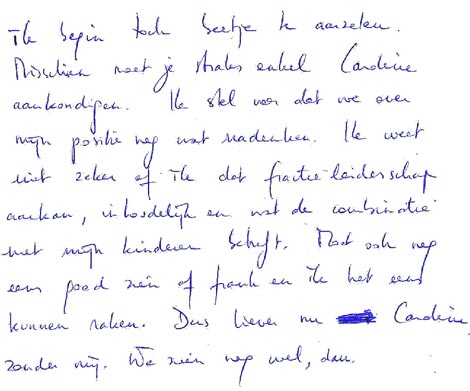 Ik begin toch beetje te aarzelen.
Misschien moet je straks enkel Caroline
aankondigen. Ik stel voor dat we over
mijn positie nog wat nadenken. Ik weet
niet zeker of ik dat fractieleiderschap
aankan, inhoudelijk en wat de combinatie
met mijn kinderen betreft. Moet ook nog
eens goed zien of Frank en ik het eens
kunnen raken. Dus liever nu Caroline,
zonder mij. We zien nog wel, dan.